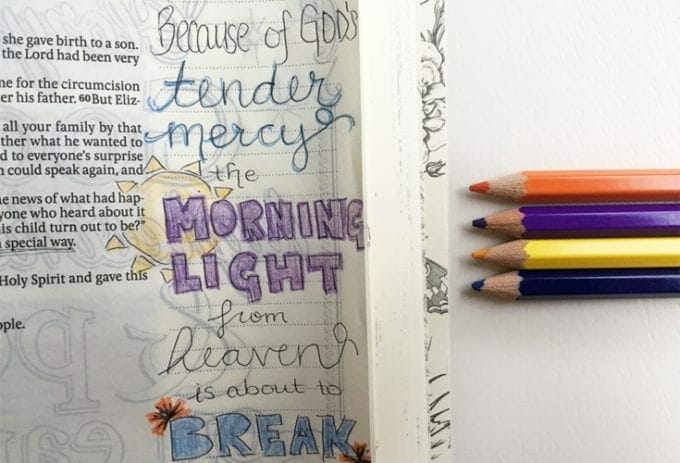 she gave birth to a son.
the Lord had been very
ne for the circumcision
er his father. 60 But Eliz-
all your family by that
ther what he wanted to
d to everyone's surprise
n could speak again, and
e news of what had hap-
yone who heard about it
is child turn out to be?"
a special way.
Holy Spirit and gave this
ople.
Because of GOD'S
tender
mercy
the
MORNING
LIGHT
from
heaven
is about to
BREAK